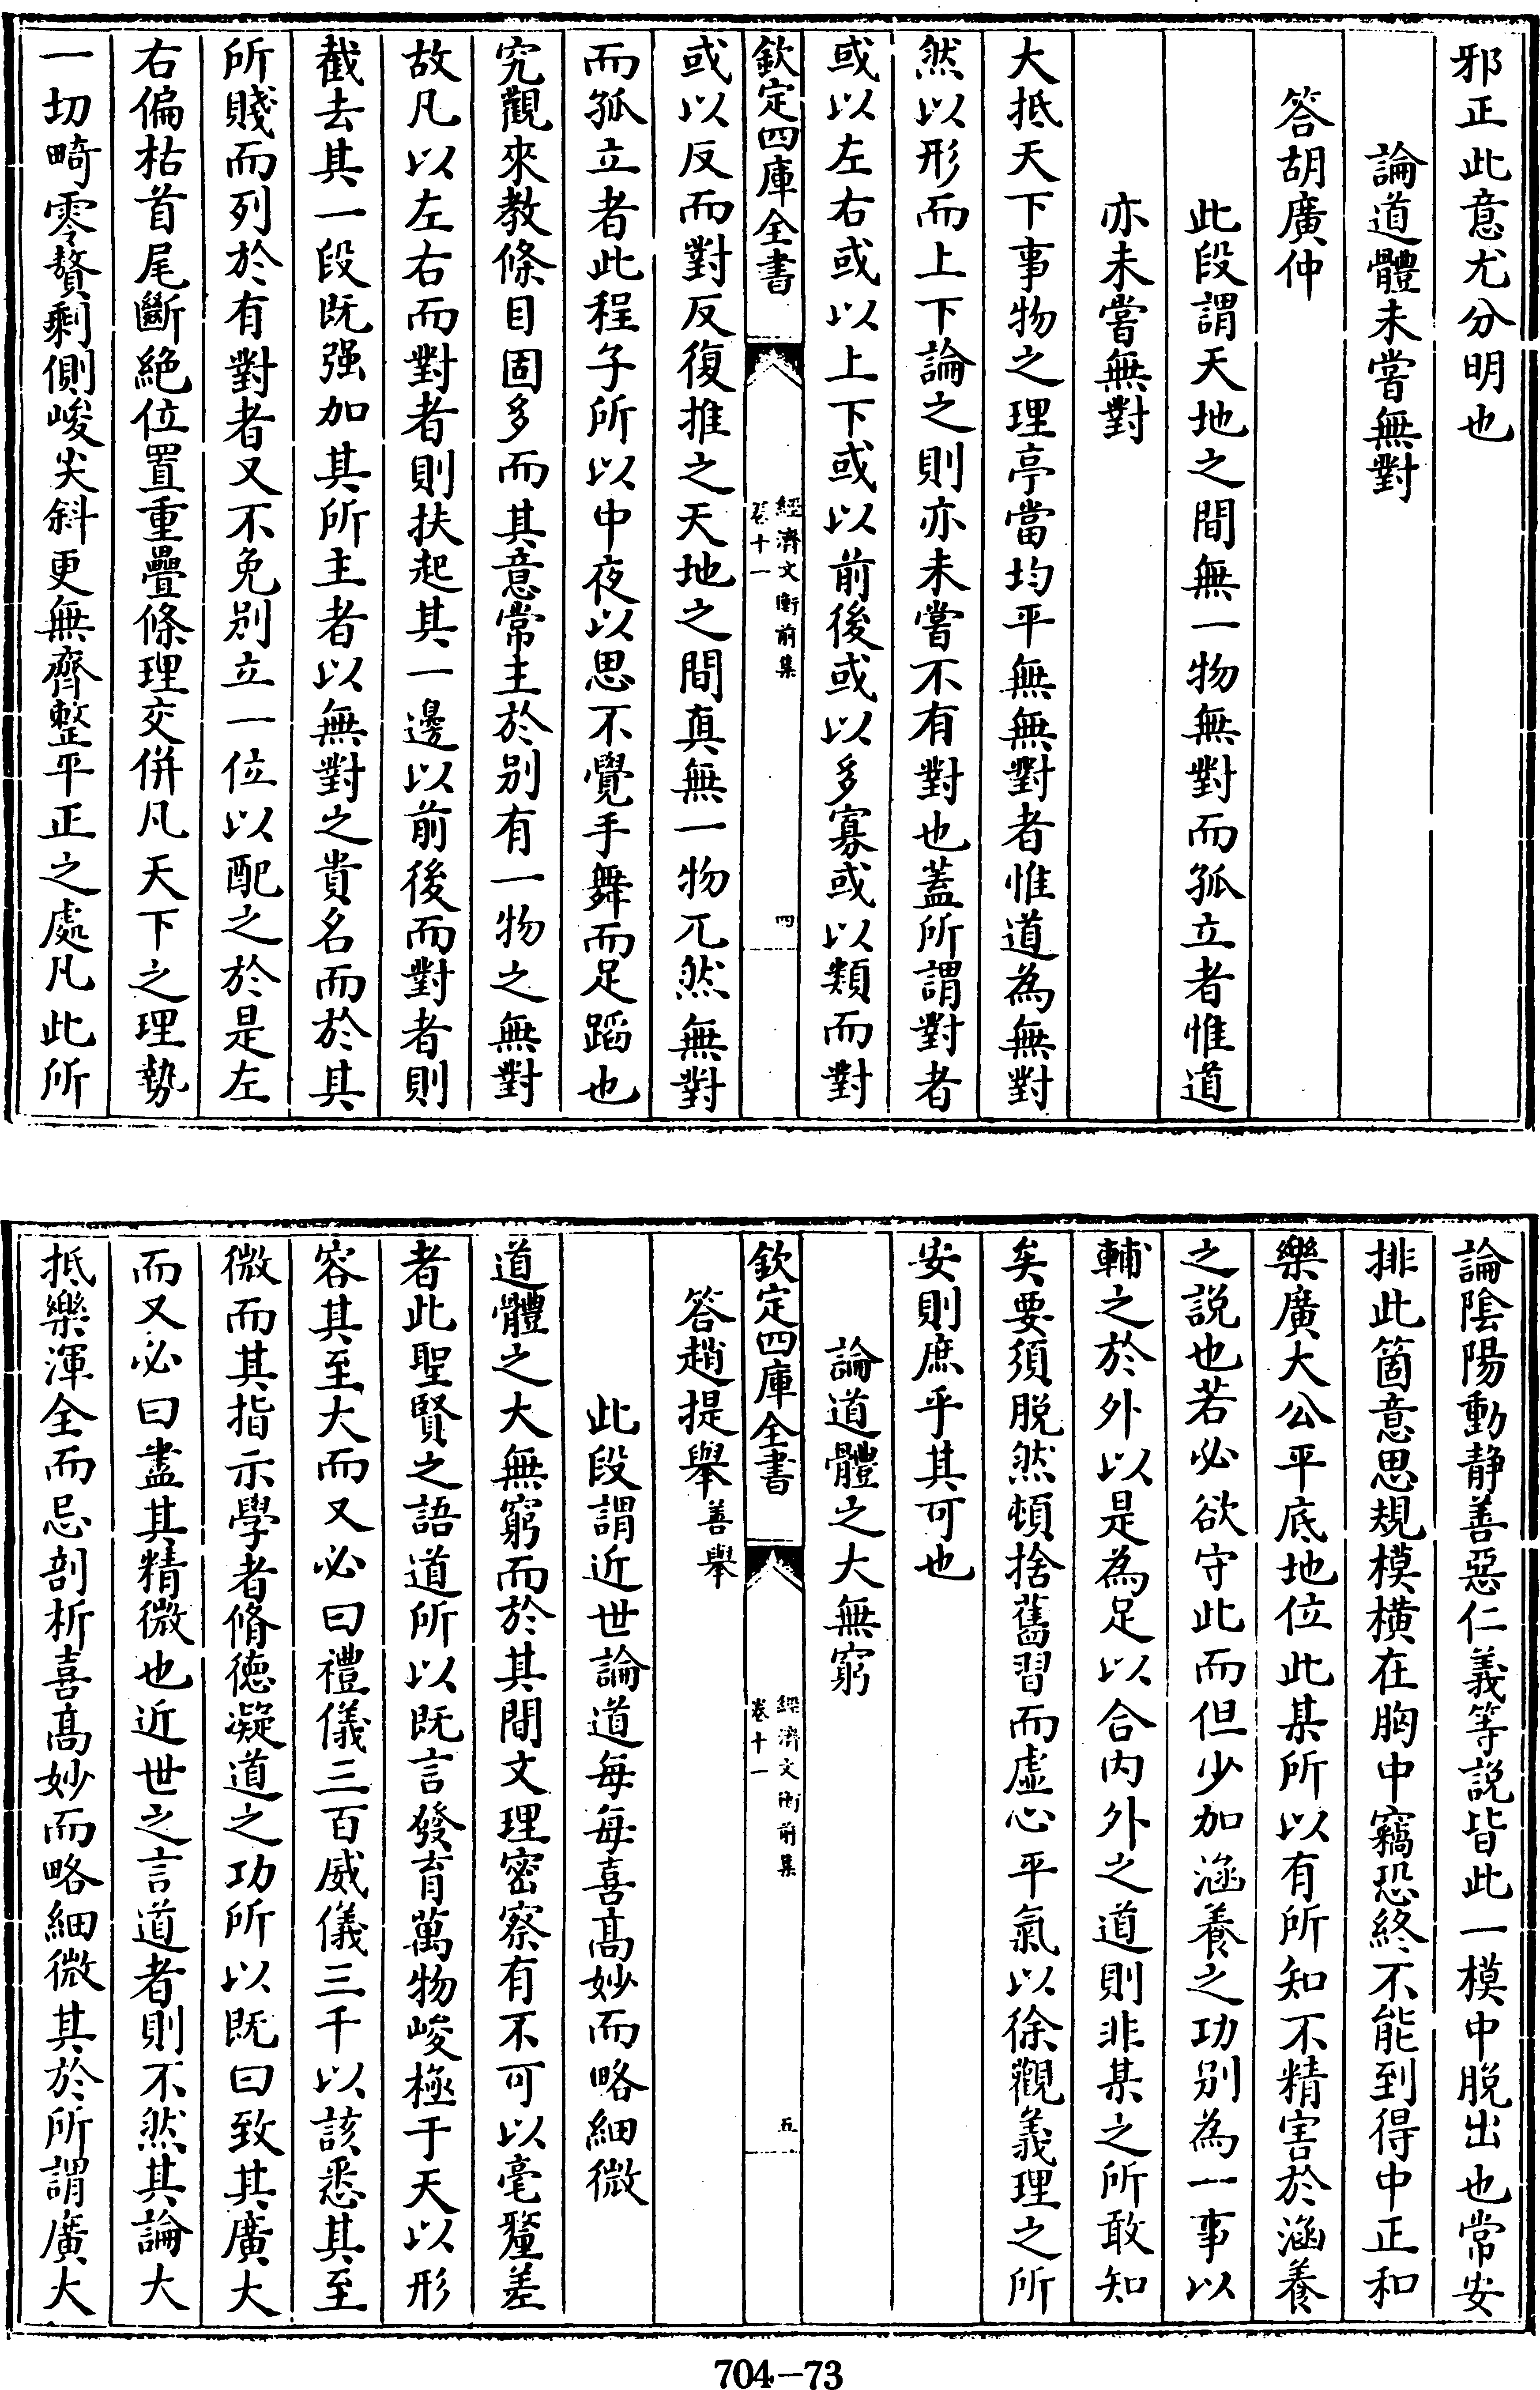 邪正此意尤分明也
論道體未嘗無對
答胡廣仲
此段謂天地之間無一物無對而孤立者惟道
亦未嘗無對
大抵天下事物之理亭當均平無無對者惟道為無對
然以形而上下論之則亦未嘗不有對也蓋所謂對者
或以左右或以上下或以前後或以多寡或以類而對
欽定四庫全書
經濟文衡前集
卷十一
四
或以反而對反復推之天地之間真無一物兀然無對
而孤立者此程子所以中夜以思不覺手舞而足蹈也
究觀來教條目固多而其意常主於别有一物之無對
故凡以左右而對者則扶起其一邊以前後而對者則
截去其一段既强加其所主者以無對之貴名而於其
所賤而列於有對者又不免别立一位以配之於是左
右偏枯首尾斷絶位置重疊條理交併凡天下之理勢
一切畸零贅剩側峻尖斜更無齊整平正之處凡此所
論陰陽動静善惡仁義等説皆此一模中脱出也常安
排此箇意思規模横在胸中竊恐終不能到得中正和
樂廣大公平底地位此某所以有所知不精害於涵養
之説也若必欲守此而但少加涵養之功别為一事以
輔之於外以是為足以合内外之道則非某之所敢知
矣要須脱然頓捨舊習而虚心平氣以徐觀義理之所
安則庶乎其可也
論道體之大無窮
欽定四庫全書
經濟文衡前集
卷十一
五
答趙提舉善舉
此段謂近世論道每每喜高妙而略細微
道體之大無窮而於其間文理密察有不可以毫釐差
者此聖賢之語道所以既言發育萬物峻極于天以形
容其至大而又必曰禮儀三百威儀三千以該悉其至
微而其指示學者脩徳凝道之功所以既曰致其廣大
而又必曰盡其精微也近世之言道者則不然其論大
抵樂渾全而忌剖析喜高妙而略細微其於所謂廣大
704-73